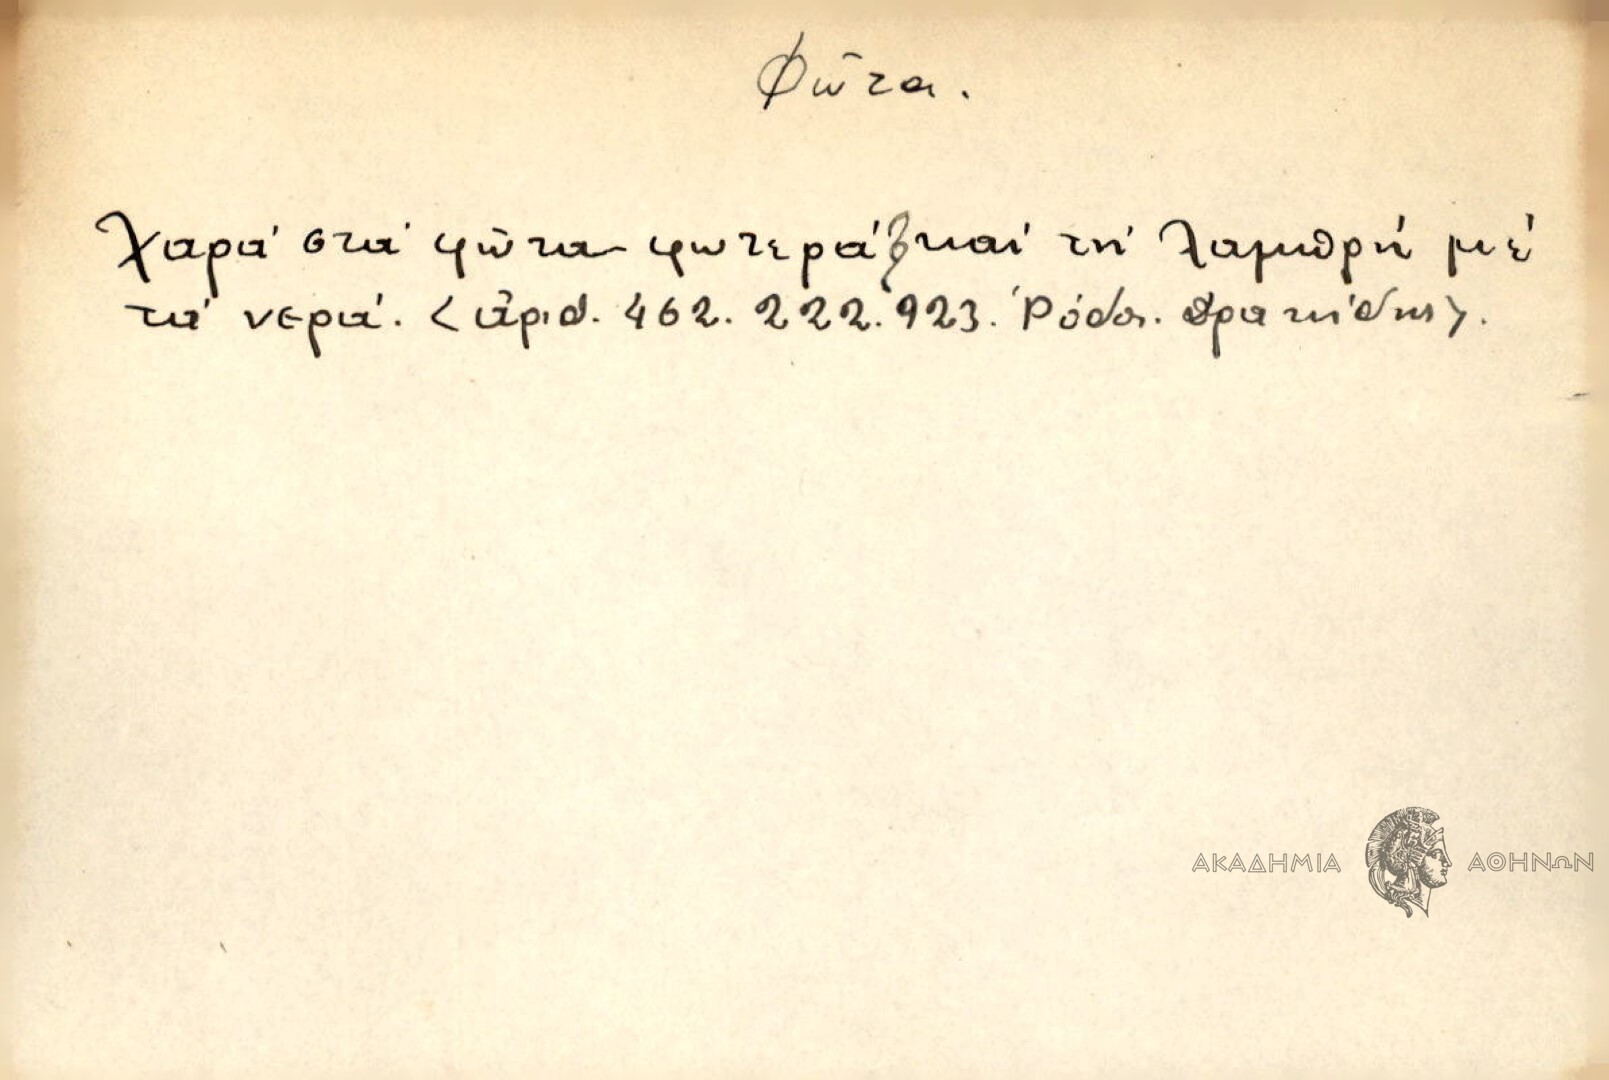 Φῶτα.
Χαρά στά φῶτα φωτερά καί τή λαμπρή μέ
τά νερά. < ἀριθ. 462. 222. 923. Ῥόδος. Δρακίδης>.
ΑΚΑΔΗΜΙΑ ΑΘΗΝΩΝ